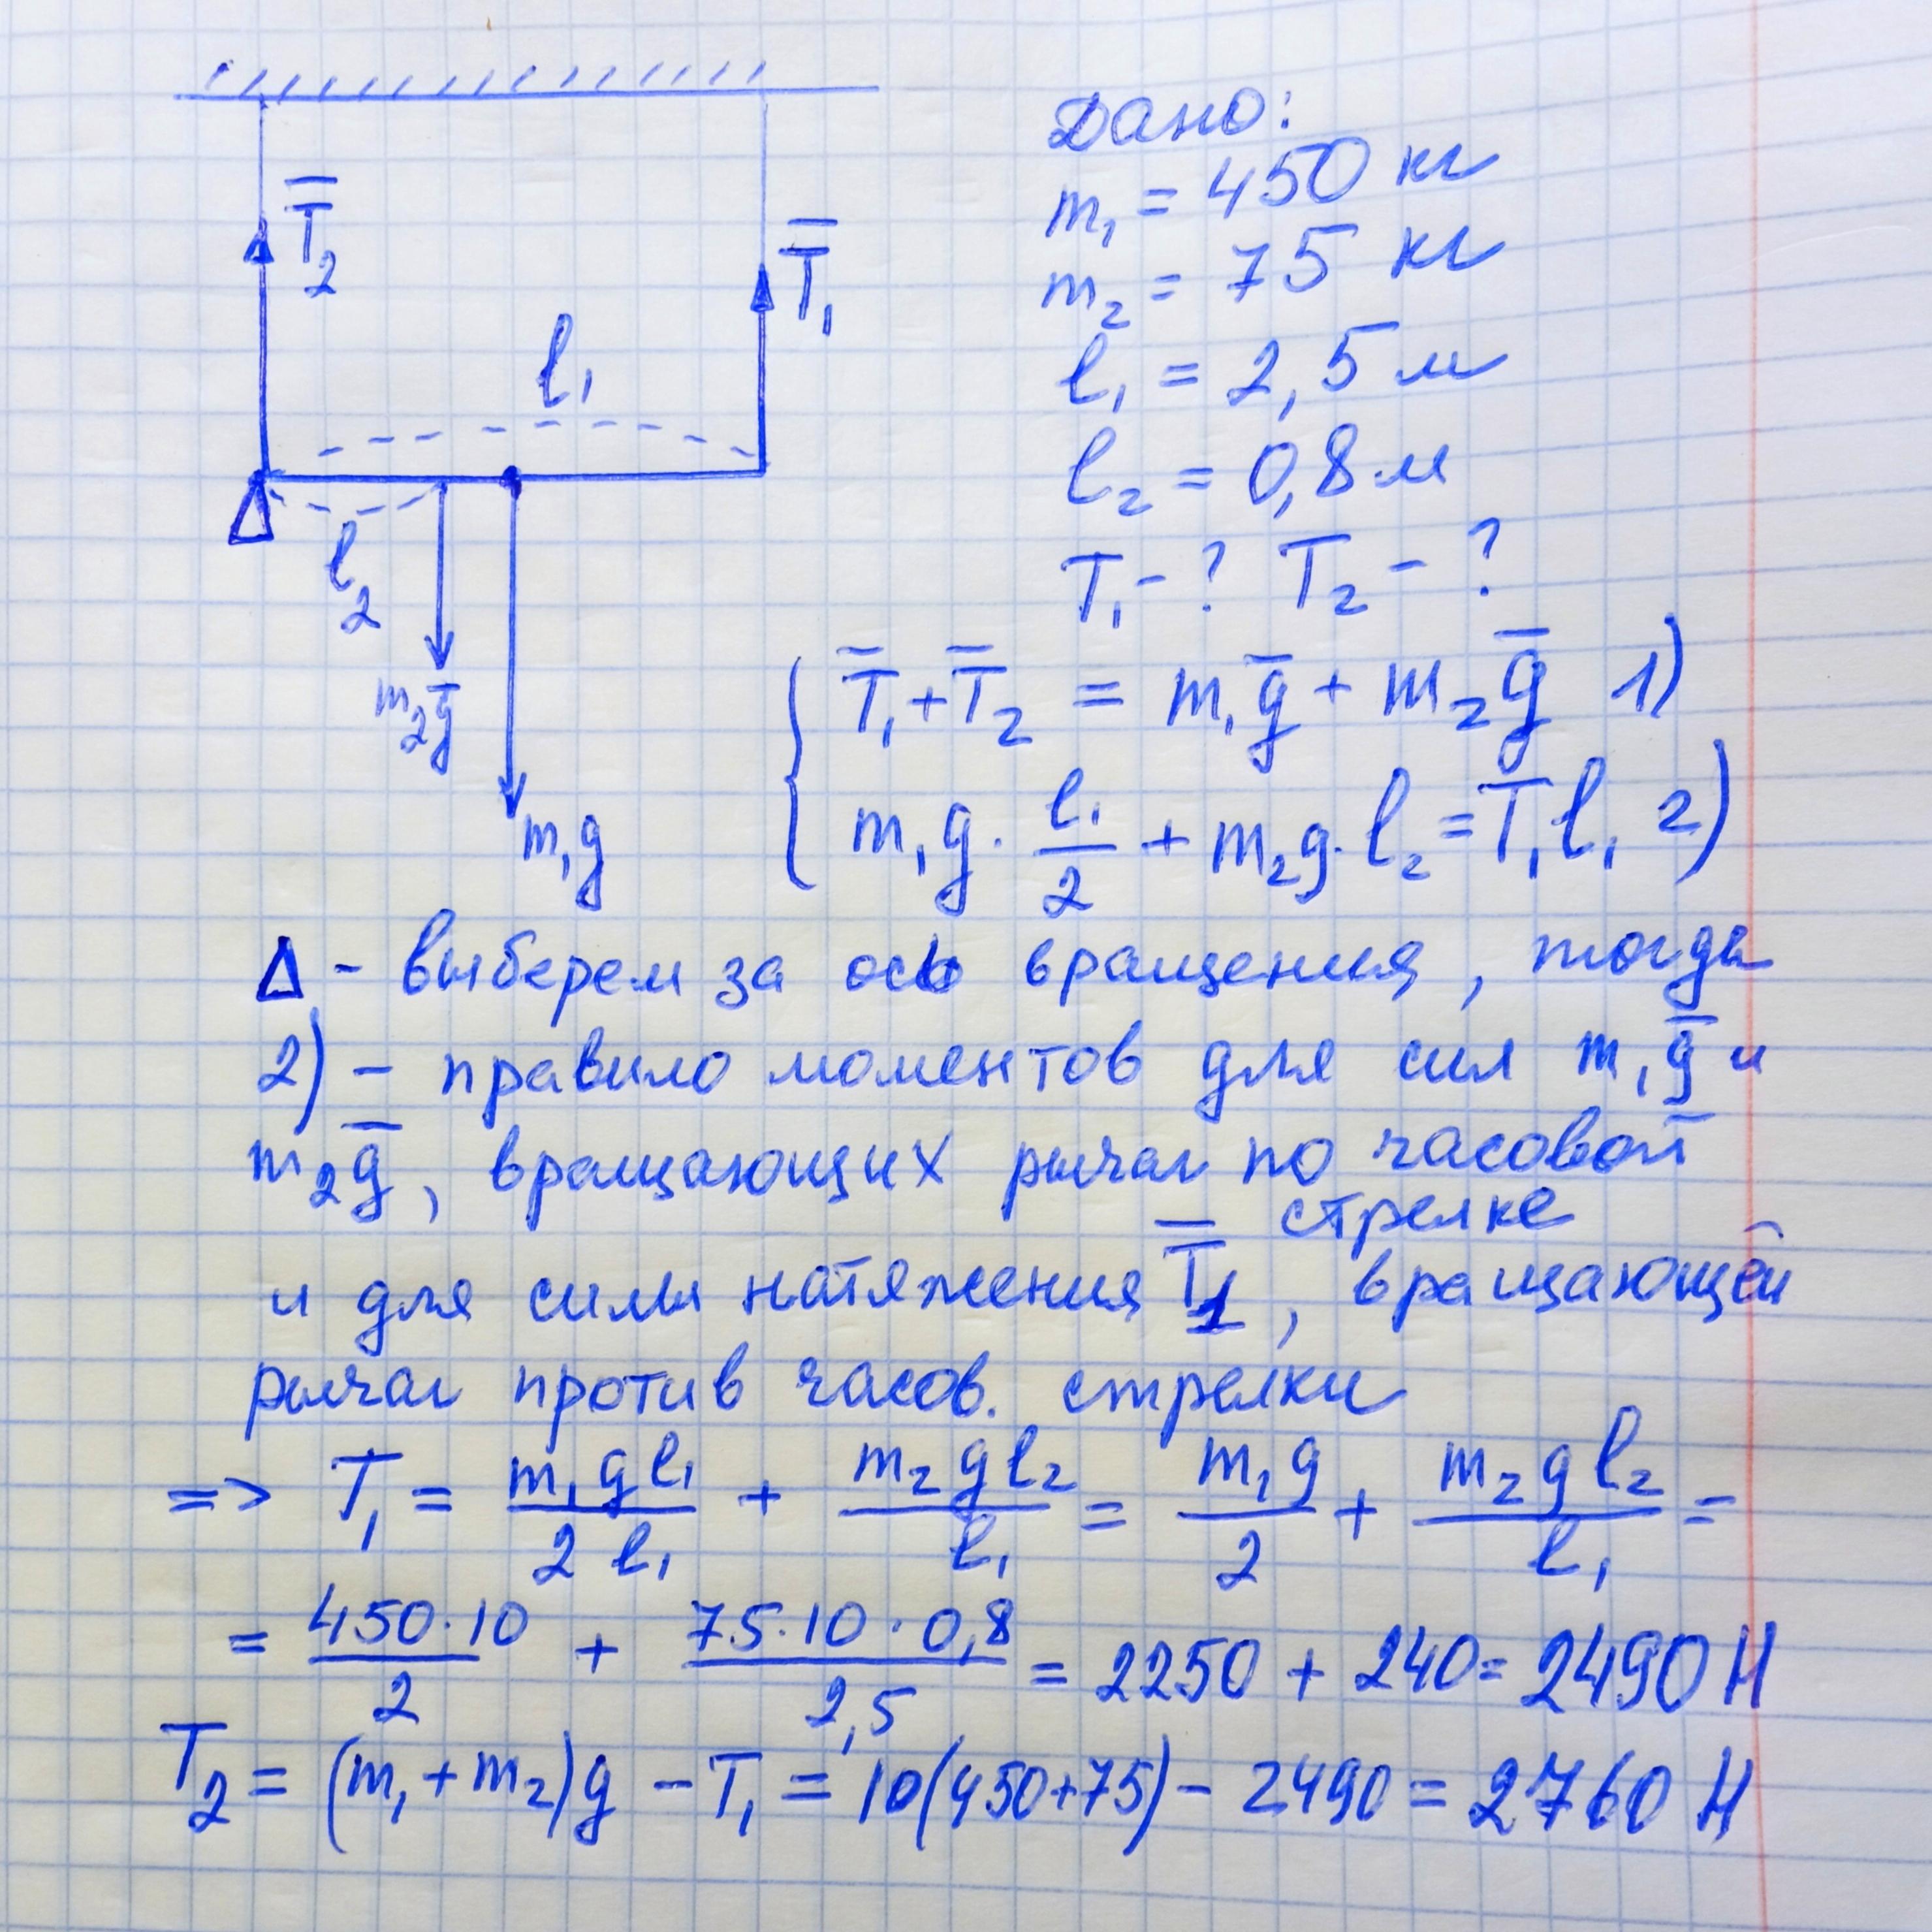 T̄₂
T̄₁
l₁
l₂
m₂ḡ
m₁g
Дано:
m₁ = 450 кг
m₂ = 75 кг
l₁ = 2,5 м
l₂ = 0,8 м
T₁ - ? T₂ - ?
T̄₁ + T̄₂ = m₁ḡ + m₂ḡ 1)
m₁g · l₁/2 + m₂g · l₂ = T₁l₁ 2)
Δ - выберем за ось вращения, тогда
2) - правило моментов для сил m₁ḡ и
m₂ḡ, вращающих рычаг по часовой
стрелке
и для силы натяжения T̄₁, вращающей
рычаг против часов. стрелки
=> T₁ = m₁gl₁/2l₁ + m₂gl₂/l₁ = m₁g/2 + m₂gl₂/l₁ =
= 450·10/2 + 75·10·0,8/2,5 = 2250 + 240 = 2490 Н
T₂ = (m₁+m₂)g - T₁ = 10(450+75) - 2490 = 2760 Н